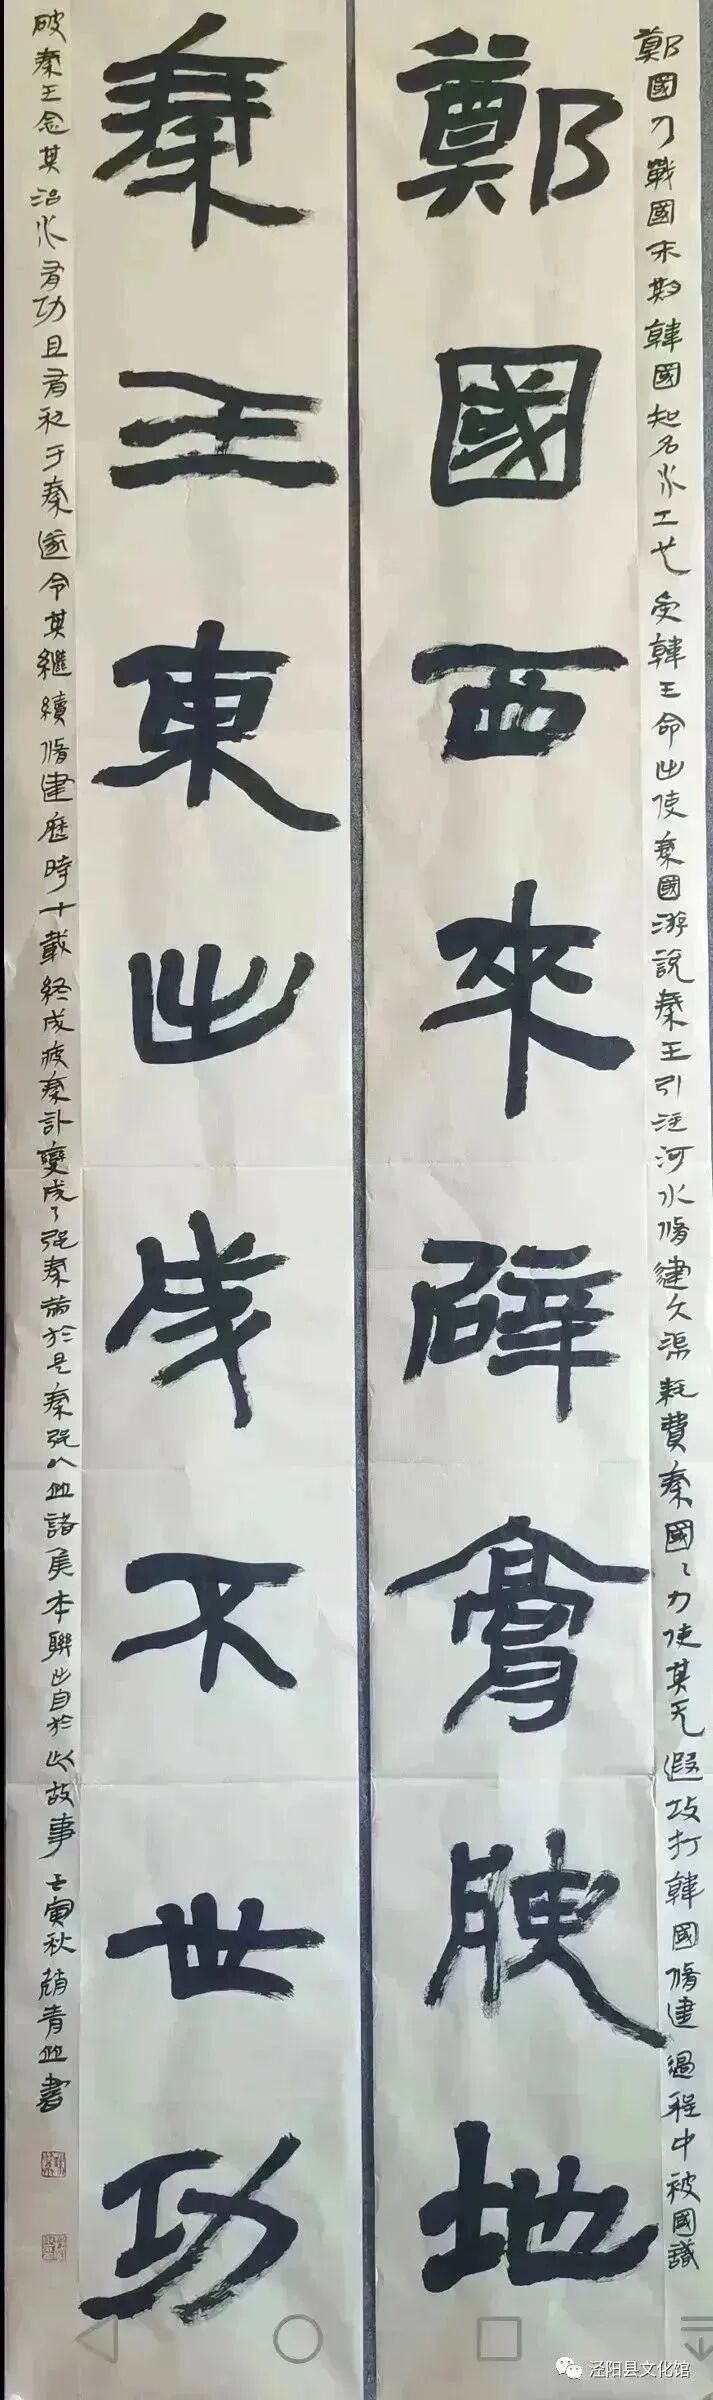 鄭國乃戰國末期韓國知名水工也受韓王命出使秦國游說秦王引泾河水脩建久渠耗費秦國〻力使其无遐攻打韓國脩建過程中被國識
鄭國西來辟膏腴地
秦王東出成不世功
破秦王念其治水有功且有利于秦遂令其繼續脩建歷時十載終成疲秦計變成了强秦 於是秦强以並諸侯本聯出自於此故事 壬寅秋趙青 書
泾阳县文化馆